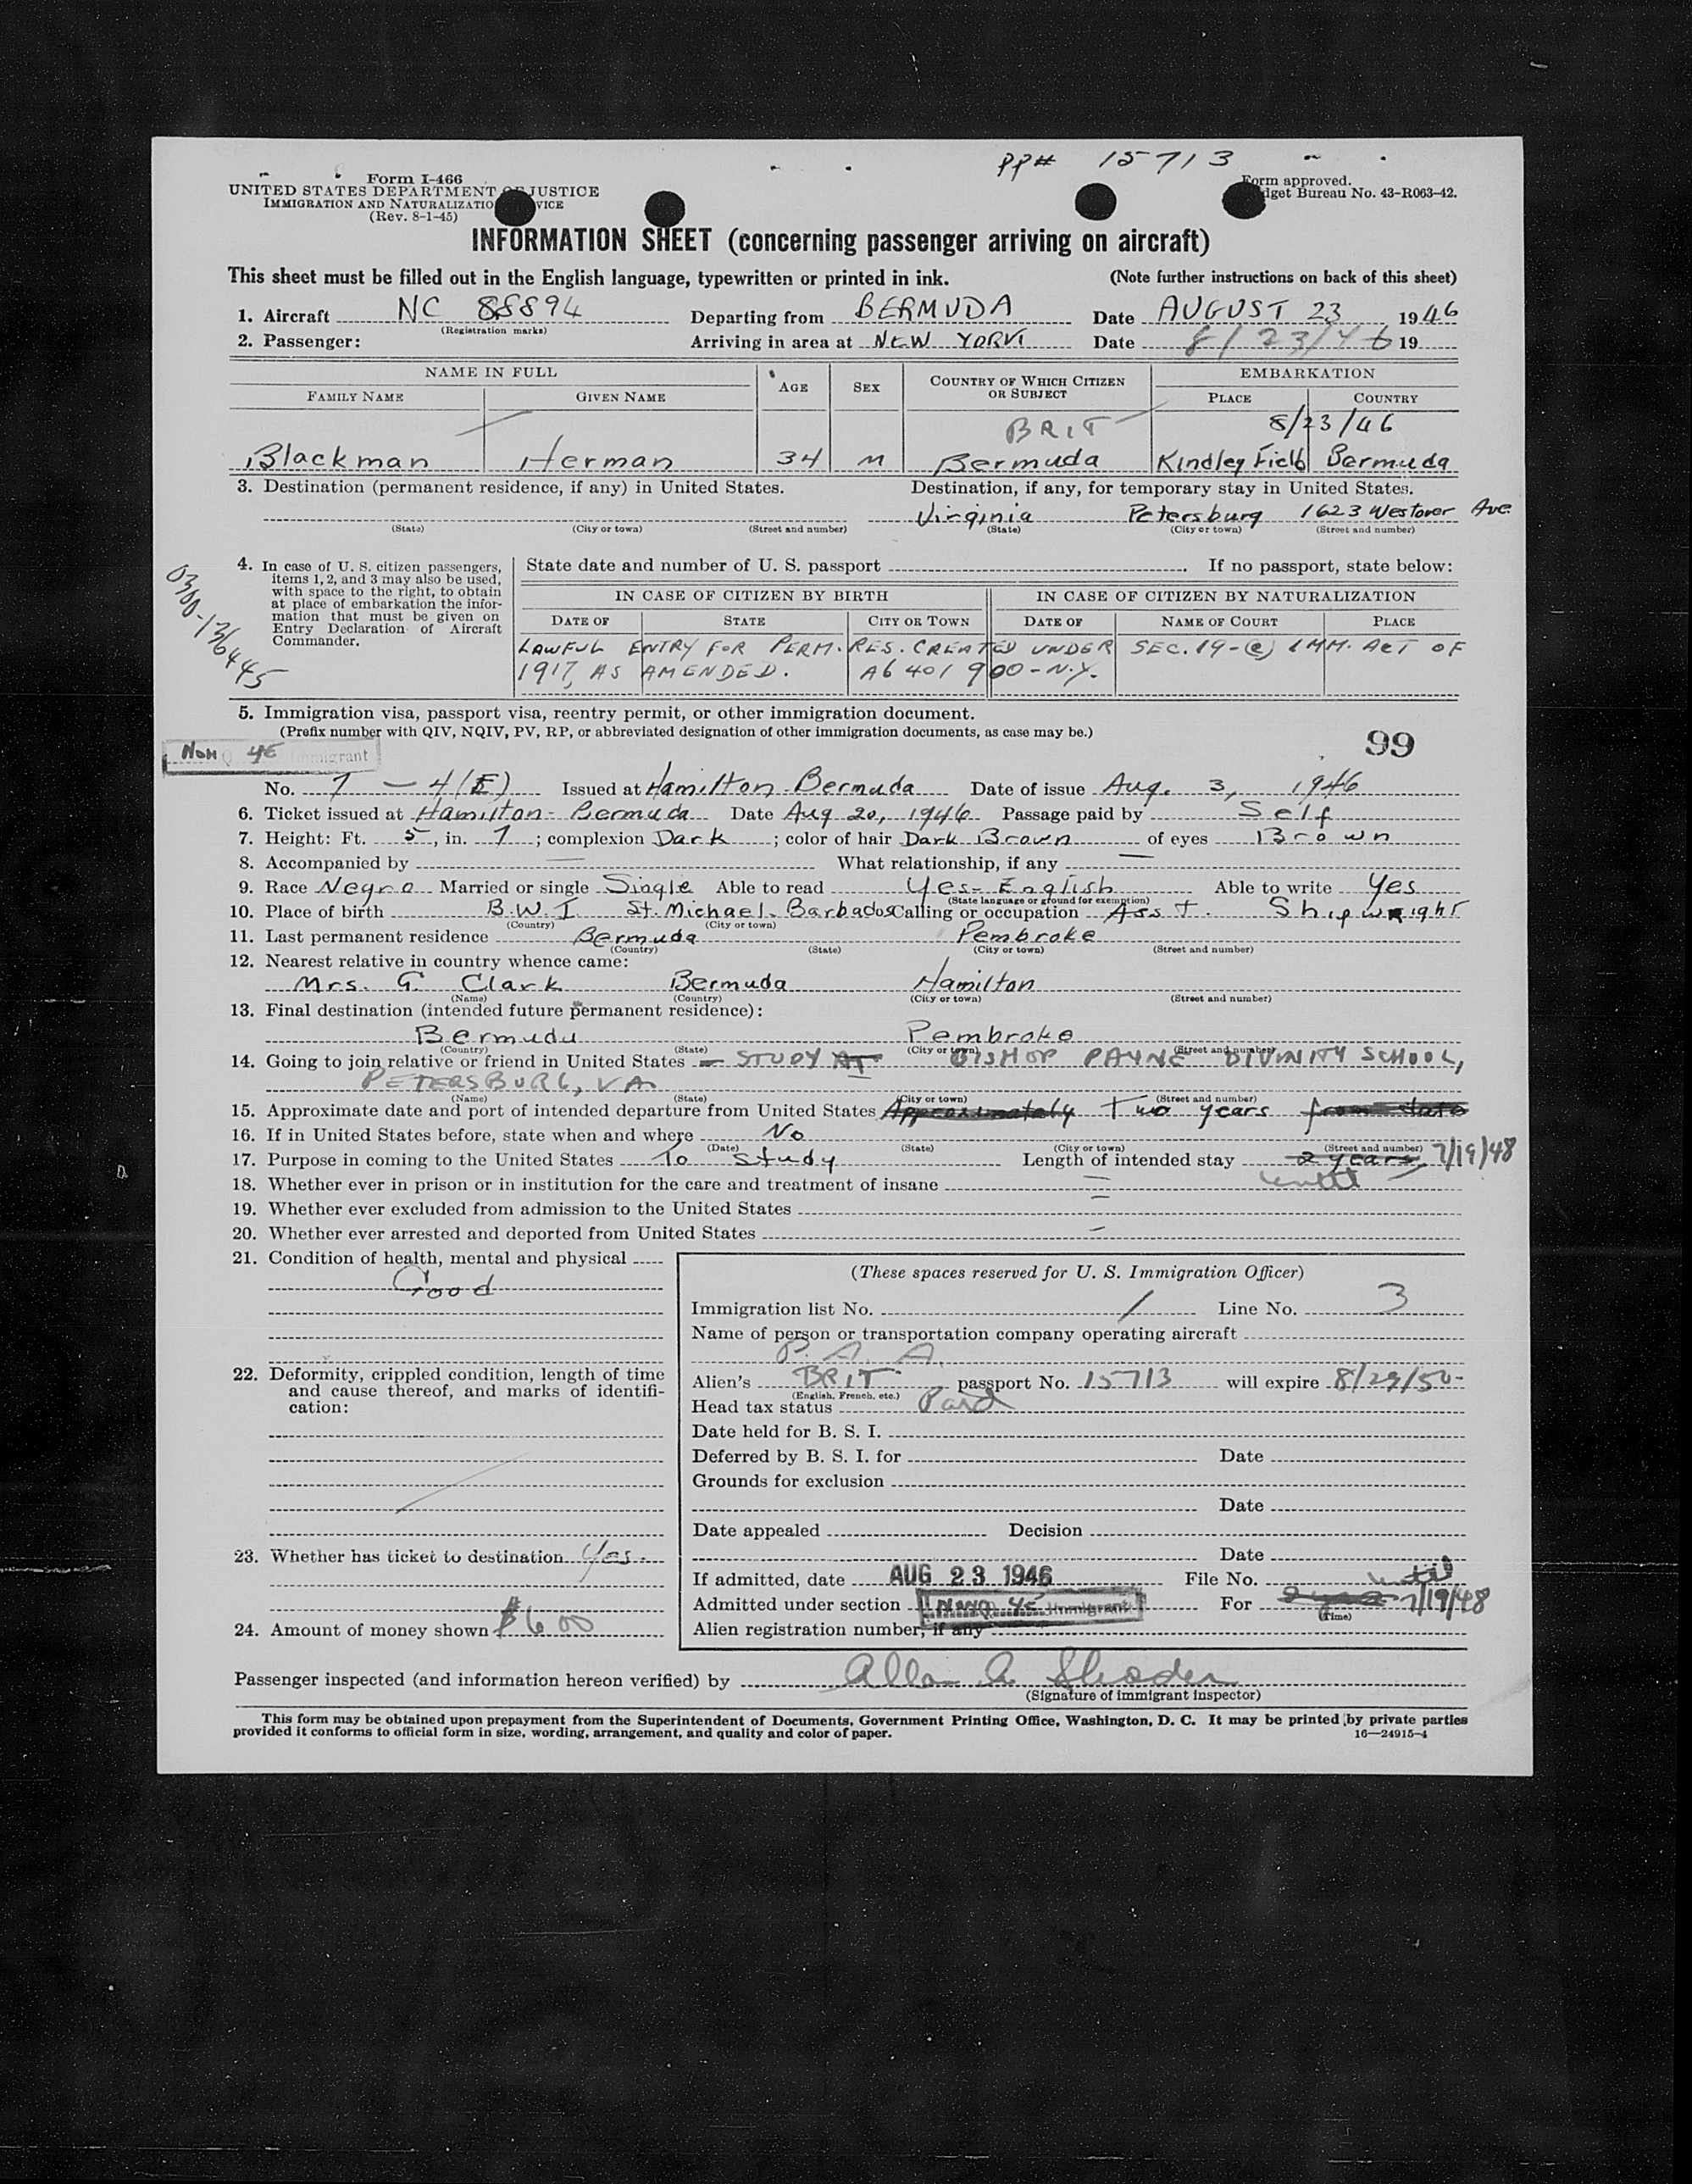 PP# 15713
Form I-466
UNITED STATES DEPARTMENT OF JUSTICE
IMMIGRATION AND NATURALIZATIO VICE
(Rev. 8-1-45)
Form approved.
dget Bureau No. 43-R063-42.
INFORMATION SHEET (concerning passenger arriving on aircraft)
This sheet must be filled out in the English language, typewritten or printed in ink. (Note further instructions on back of this sheet)
1. Aircraft NC 88894 Departing from BERMUDA Date AUGUST 23 1946
(Registration marks)
2. Passenger: Arriving in area at NEW YORK Date 8/23/46 19
NAME IN FULL AGE SEX COUNTRY OF WHICH CITIZEN OR SUBJECT EMBARKATION
FAMILY NAME GIVEN NAME PLACE COUNTRY
BRIT 8/23/46
Blackman Herman 34 M Bermuda Kindley Field Bermuda
3. Destination (permanent residence, if any) in United States. Destination, if any, for temporary stay in United States.
Virginia Petersburg 1623 Westover Ave.
(State) (City or town) (Street and number) (State) (City or town) (Street and number)
0300-136445
4. In case of U. S. citizen passengers, items 1, 2, and 3 may also be used, with space to the right, to obtain at place of embarkation the information that must be given on Entry Declaration of Aircraft Commander.
State date and number of U. S. passport . If no passport, state below:
IN CASE OF CITIZEN BY BIRTH IN CASE OF CITIZEN BY NATURALIZATION
DATE OF STATE CITY OR TOWN DATE OF NAME OF COURT PLACE
LAWFUL ENTRY FOR PERM. RES. CREATED UNDER SEC. 19-(c) IMM. ACT OF
1917, AS AMENDED. A6 401 900-N.Y.
5. Immigration visa, passport visa, reentry permit, or other immigration document.
(Prefix number with QIV, NQIV, PV, RP, or abbreviated designation of other immigration documents, as case may be.)
99
Non 4E Immigrant
No. 7 - 4(E) Issued at Hamilton-Bermuda Date of issue Aug. 3, 1946
6. Ticket issued at Hamilton-Bermuda Date Aug 20, 1946 Passage paid by Self
7. Height: Ft. 5, in. 7; complexion Dark; color of hair Dark Brown of eyes Brown
8. Accompanied by — What relationship, if any —
9. Race Negro Married or single Single Able to read Yes-English Able to write Yes
(State language or ground for exemption)
10. Place of birth B.W.I. St. Michael-Barbados Calling or occupation Ass't. Shipwright
(Country) (City or town)
11. Last permanent residence Bermuda Pembroke
(Country) (State) (City or town) (Street and number)
12. Nearest relative in country whence came:
Mrs. G. Clark Bermuda Hamilton
(Name) (Country) (City or town) (Street and number)
13. Final destination (intended future permanent residence):
Bermuda Pembroke
(Country) (State) (City or town) (Street and number)
14. Going to join relative or friend in United States - STUDY AT BISHOP PAYNE DIVINITY SCHOOL,
PETERSBURG, VA
(Name) (State) (City or town) (Street and number)
15. Approximate date and port of intended departure from United States Approximately Two years from date
16. If in United States before, state when and where No
(Date) (State) (City or town) (Street and number)
17. Purpose in coming to the United States To Study Length of intended stay 2 years 7/19/48
until
18. Whether ever in prison or in institution for the care and treatment of insane —
19. Whether ever excluded from admission to the United States —
20. Whether ever arrested and deported from United States —
21. Condition of health, mental and physical
Good
22. Deformity, crippled condition, length of time and cause thereof, and marks of identification:
23. Whether has ticket to destination Yes.
24. Amount of money shown $600
(These spaces reserved for U. S. Immigration Officer)
Immigration list No. 1 Line No. 3
Name of person or transportation company operating aircraft
P. A. A.
Alien's BRIT passport No. 15713 will expire 8/29/50
(English, French, etc.)
Head tax status Paid
Date held for B. S. I.
Deferred by B. S. I. for Date
Grounds for exclusion
Date
Date appealed Decision
Date
If admitted, date AUG 23 1946 File No.
until
Admitted under section NonQ 4E Immigrant For 2 years 7/19/48
(Time)
Alien registration number, if any
Passenger inspected (and information hereon verified) by Allan A Shader
(Signature of immigrant inspector)
This form may be obtained upon prepayment from the Superintendent of Documents, Government Printing Office, Washington, D. C. It may be printed by private parties
provided it conforms to official form in size, wording, arrangement, and quality and color of paper. 16—24915-4